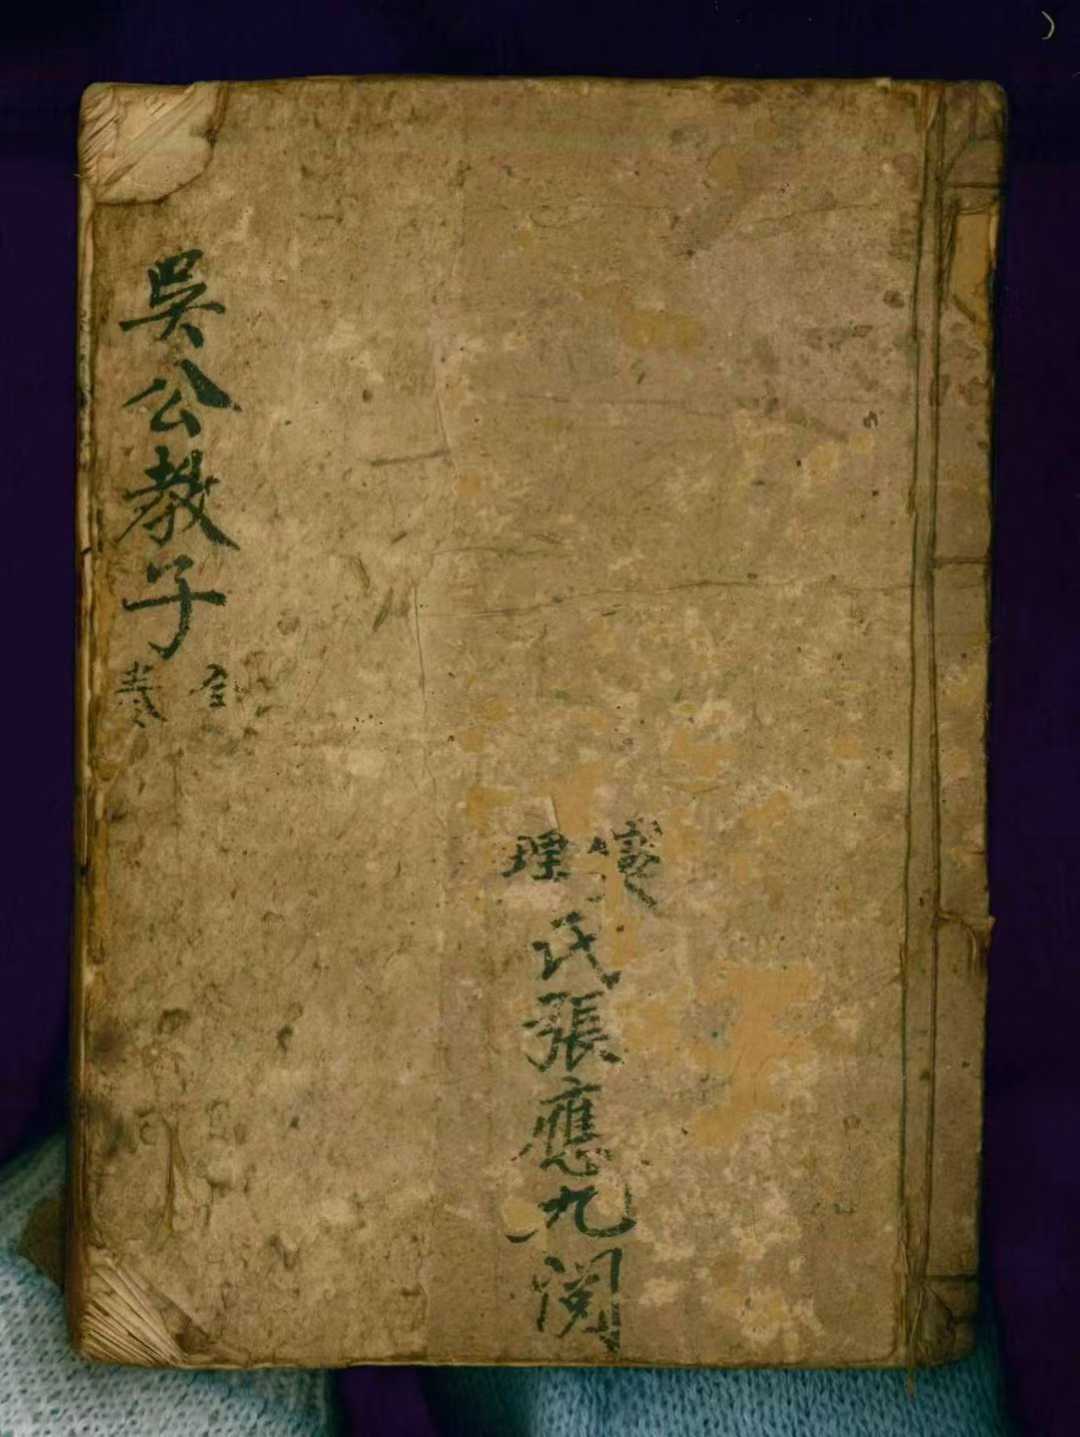 吳公教子
全
卷
氏張應九閱